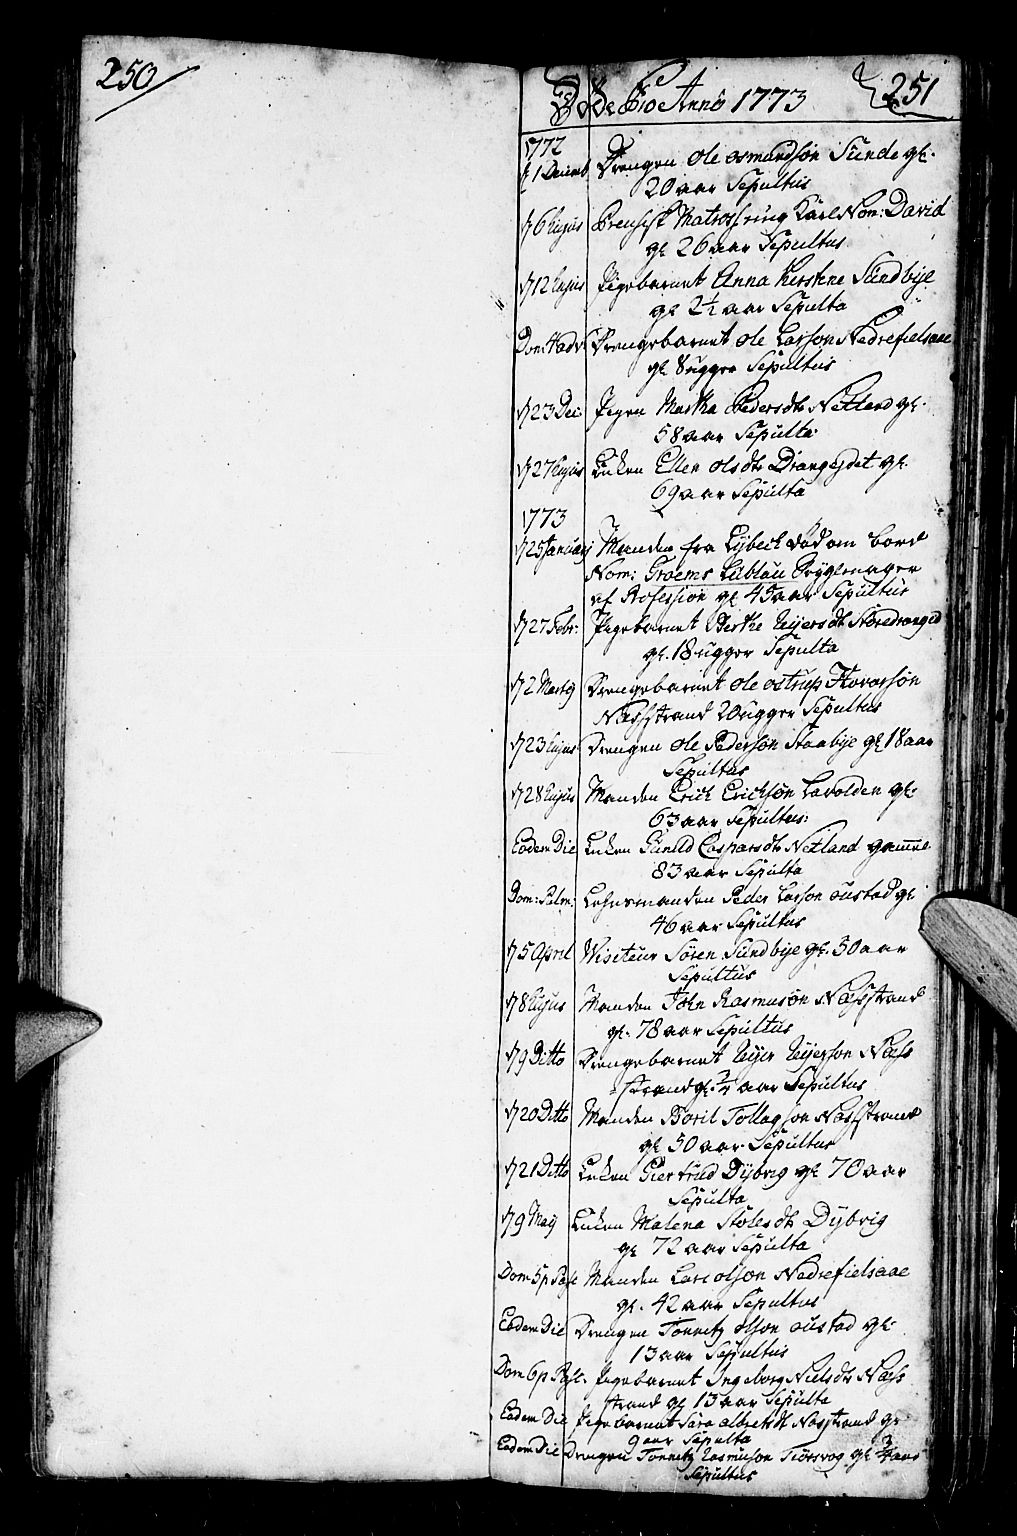 250
Døde Pro Anno 1773
251
1772
d 1 Decemb Drengen Ole Osmundsøn Sunde gl.
20 aar Sepultus
d 6 Hujus Preusisk Matros ring Karl Nom: David
gl 26 aar Sepultus
d 12 hujus Pigebarnet Anna Kerstine Sundbye
gl 2½ aar Sepulta
Dom 4 adv: Drengebarnet Ole Larsøn Nedrefielsaae
gl. 8 ugger Sepultus
d 23 Dec. Pigen Martha Pedersdtr Netland gl.
58 aar Sepulta
d 27 hujus Enken Ellen Olsdtr Drangejdet gl.
69 aar Sepulta
1773
d 25 Januarj Manden fra Lybeck død om bord
Nom: Troems Lüblau Røgl
af Profession gl 45 aar Sepultus
d 27 Febr: Pigebarnet Berthe Rejersdtr Storedranged
gl. 18 ugger Sepulta
d 2 Martij Drengebarnet Ole Ostrup Hovarsøn
Næsstrand 20 ugger Sepultus
d 23 hujus Drengen Ole Pedersøn Staabye gl 18 aar
Sepultus
d 28 hujus Manden Erick Ericksøn Lavolden gl.
63 aar Sepultus:
Eodem Die Enken Gunild Caspersdtr Netland gammel
83 aar Sepulta
Dom: Palm: Lehnsmanden Peder Larsøn Oustad gl:
46 aar Sepultus
d 5 April Visiteur Søren Sundbye gl. 30 aar
Sepultus
d 8 hujus Manden John Rasmusøn Næsstrand
gl. 78 aar Sepultus
d 9 Ditto Drengebarnet Rejer Rejersøn Næss
strand gl. ¾ aar Sepultus
d 20 Ditto Manden Boril Tollagsøn Næsstrand
gl 50 aar Sepultus
d 21 Ditto Enken Giertrud Dybvig gl 70 aar
Sepulta
d 9 Maij Enken Malena Stolesdtr Dybvig
gl 72 aar Sepulta
Dom 5 p Pasc Manden Lars Olsøn Nedrefielsaae
gl. 42 aar Sepultus
Eodem Die Drengen Tønnes Olsøn Oustad gl.
13 aar Sepultus
Dom 6 p Pasc. Pigebarnet Ingeborg Nielsdtr Næss
strand gl 13 aar Sepulta
Eodem Die Pigebarnet Sara Albretsdt Næsstrand gl
9 aar Sepulta
Eodem Die Drengen Tønnes Rasmusøn Tiørsvog gl ¾ aar
Sepultus